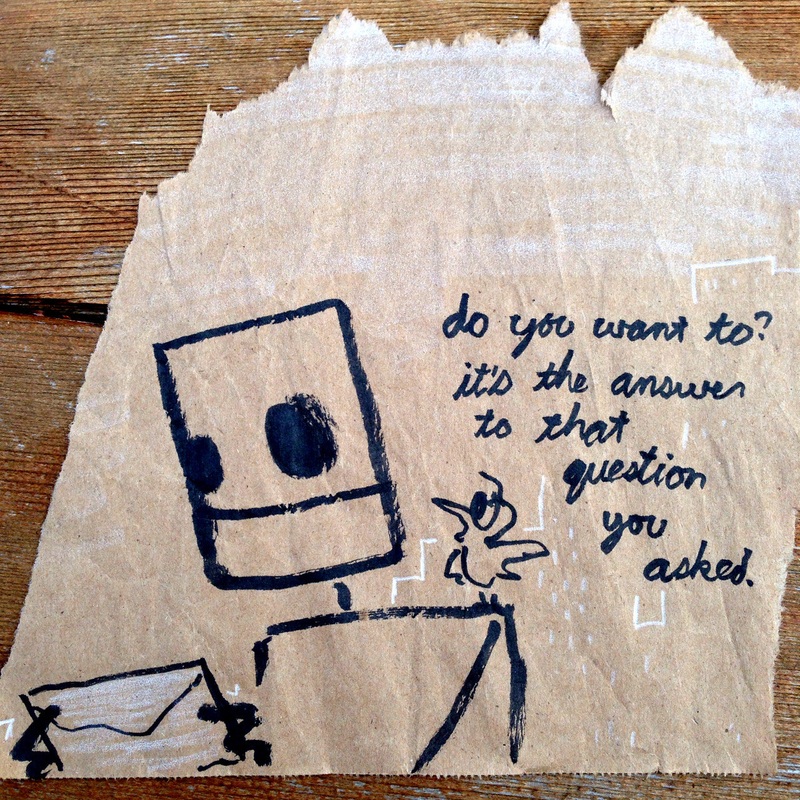 do you want to?
it's the answer
to that
question
you
asked.